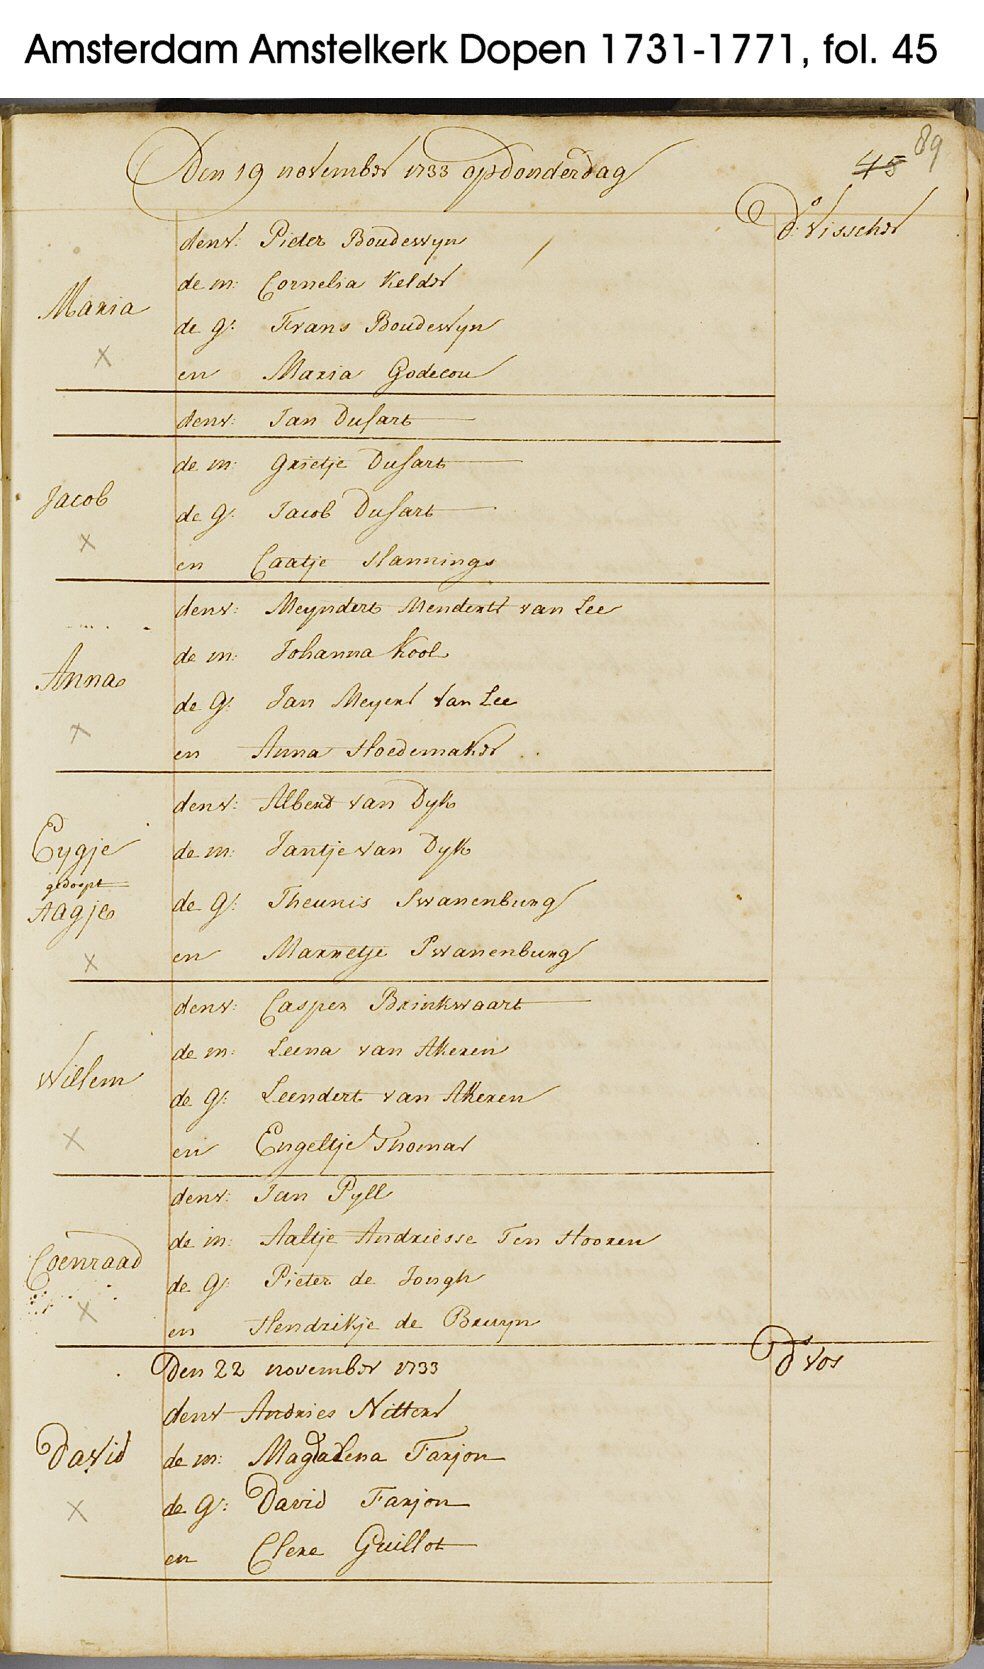 Amsterdam Amstelkerk Dopen 1731-1771, fol. 45
89
45
Den 19 november 1733 op donderdag
D: Visscher
denv: Pieter Boudewyn
de m: Cornelia Kelder
Maria
de g: Frans Boudewyn
x
en Maria Godecou
denv: Jan Dusart
de m: Grietje Dusart
Jacob
de g: Jacob Dusart
x
en Caatje Hannings
denv: Meyndert Mendertz van Lee
de m: Johanna Kool
Anna
de g: Jan Meyert van Lee
x
en Anna Hoedemaker
denv: Albert van Dyk
Eygje
de m: Jantje van Dyk
gedoopt
Aagje
de g: Theunis Swanenburg
x
en Marretje Swanenburg
denv: Casper Brinkwaart
de m: Leena van Akeren
Willem
de g: Leendert van Akeren
x
en Engeltje Thomas
denv: Jan Pyll
de m: Aaltje Andriesse Ten Hooren
Coenraad
de g: Pieter de Jongh
x
en Hendrikje de Bruyn
Den 22 november 1733
D: Vos
denv Andries Nitters
David
de m: Magdalena Farjon
de g: David Farjon
x
en Clere Guillot